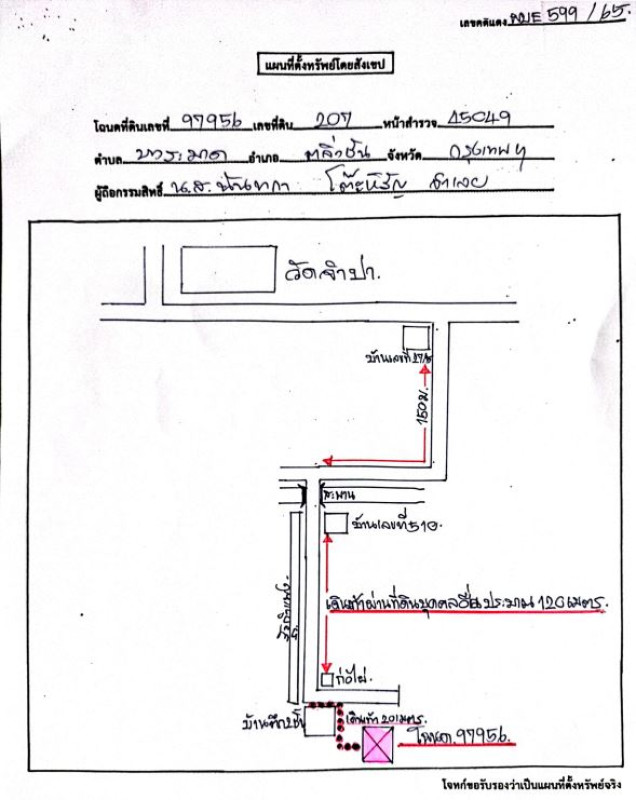 เลขคดีแดง ผบE 599 /65.
แผนที่ตั้งทรัพย์โดยสังเขป
โฉนดที่ดินเลขที่ 97956 เลขที่ดิน 207 หน้าสำรวจ 45049
ตำบล บางระมาด อำเภอ ตลิ่งชัน จังหวัด กรุงเทพฯ
ผู้ถือกรรมสิทธิ์ น.ส. นันทกา โต๊ะหิรัญ จำเลย
วัดจำปา.
บ้านเลขที่
150 ม.
สะพาน
บ้านเลขที่ 510.
เดินเท้าผ่านที่ดินบุคคลอื่น ประมาณ 120 เมตร.
กอไผ่.
บ้านตึก 2 ชั้น
เดินเท้า 20 เมตร.
โฉนด. 97956.
โจทก์ขอรับรองว่าเป็นแผนที่ตั้งทรัพย์จริง